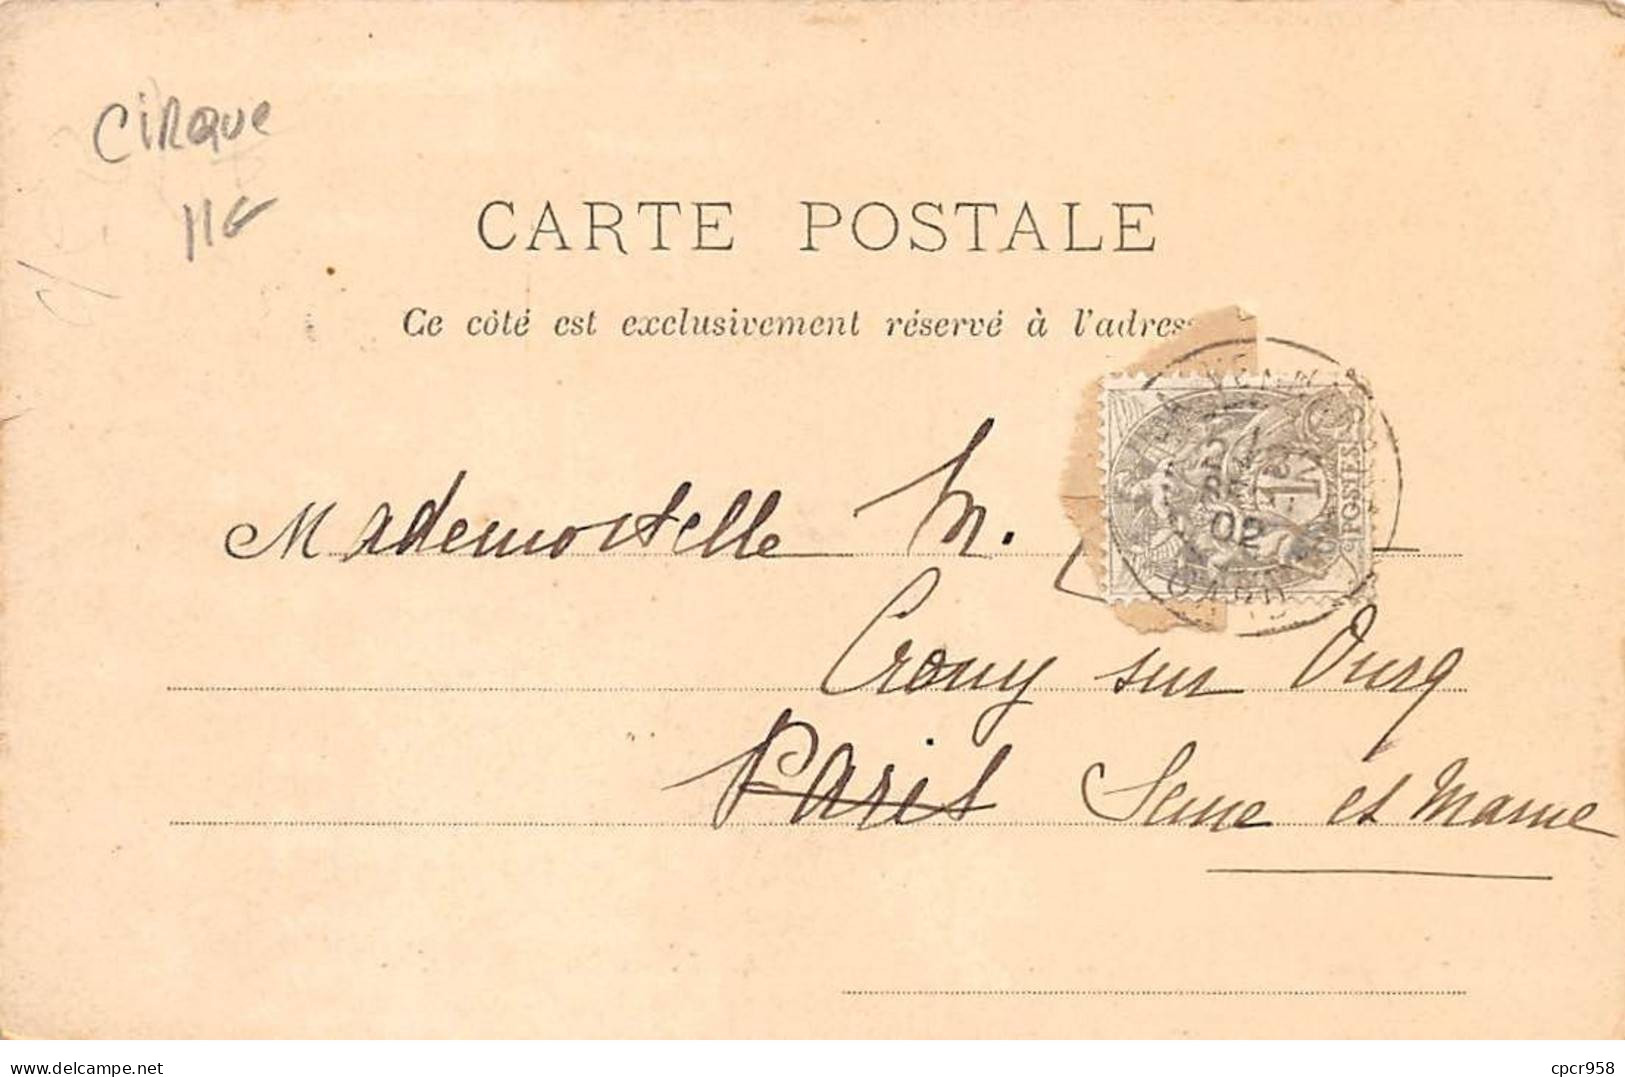 CIRQUE
11€
CARTE POSTALE
Ce côté est exclusivement réservé à l'adress
Mademoiselle M.
02
1
POSTES
Crouy sur Ourq
Paris Seine et Marne
delcampe.net
cpcr958